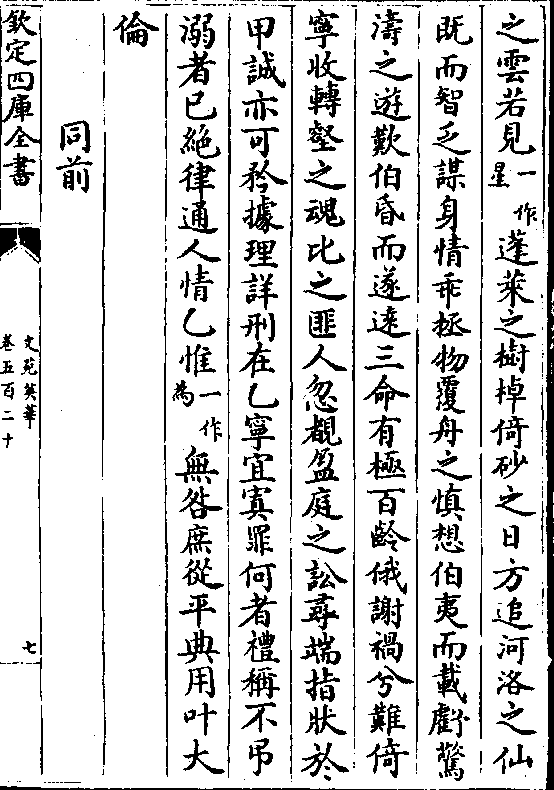 之雲若見一作星蓬萊之樹棹倚砂之日方追河洛之仙
既而智乏謀身情乖拯物覆舟之慎想伯夷而載虧驚
濤之遊歎伯昏而遂遠三命有極百齡俄謝禍兮難倚
寧收轉壑之魂比之匪人忽覩盈庭之訟尋端指狀於
甲誠亦可矜據理詳刑在乙寧宜寘罪何者禮稱不弔
溺者已絶律通人情乙惟一作為無咎庶從平典用叶大
倫
同前
欽定四庫全書
文苑英華
卷五百二十
七